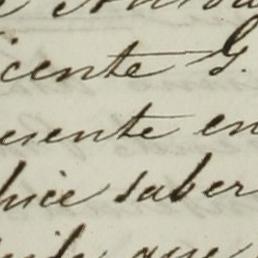 icente G.
esente en
hice saber
que